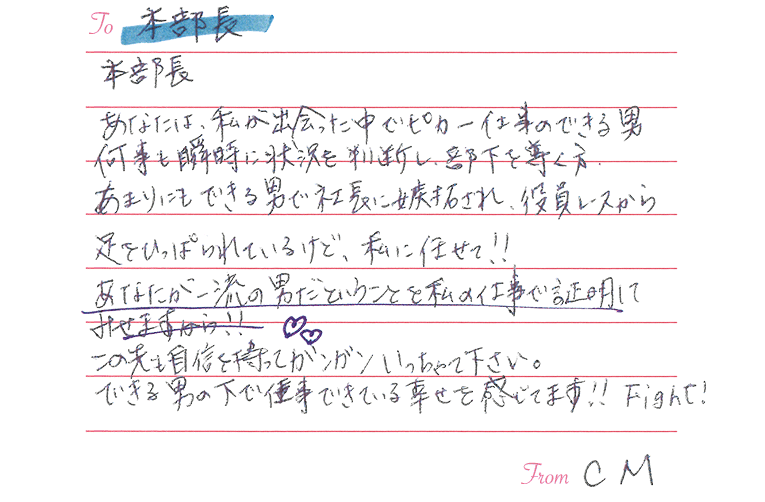 To 本部長
本部長
あなたは、私が出会った中でピカ一仕事のできる男
何事も瞬時に状況を判断し、部下を導く方.
あまりにもできる男で社長に嫉妬され、役員レースから
足をひっぱられているけど、私に任せて!!
あなたが一流の男だということを私の仕事で証明して
みせますから!!
この先も自信を持ってガンガンいっちゃって下さい。
できる男の下で仕事できている幸せを感じてます!! Fight!
From C M